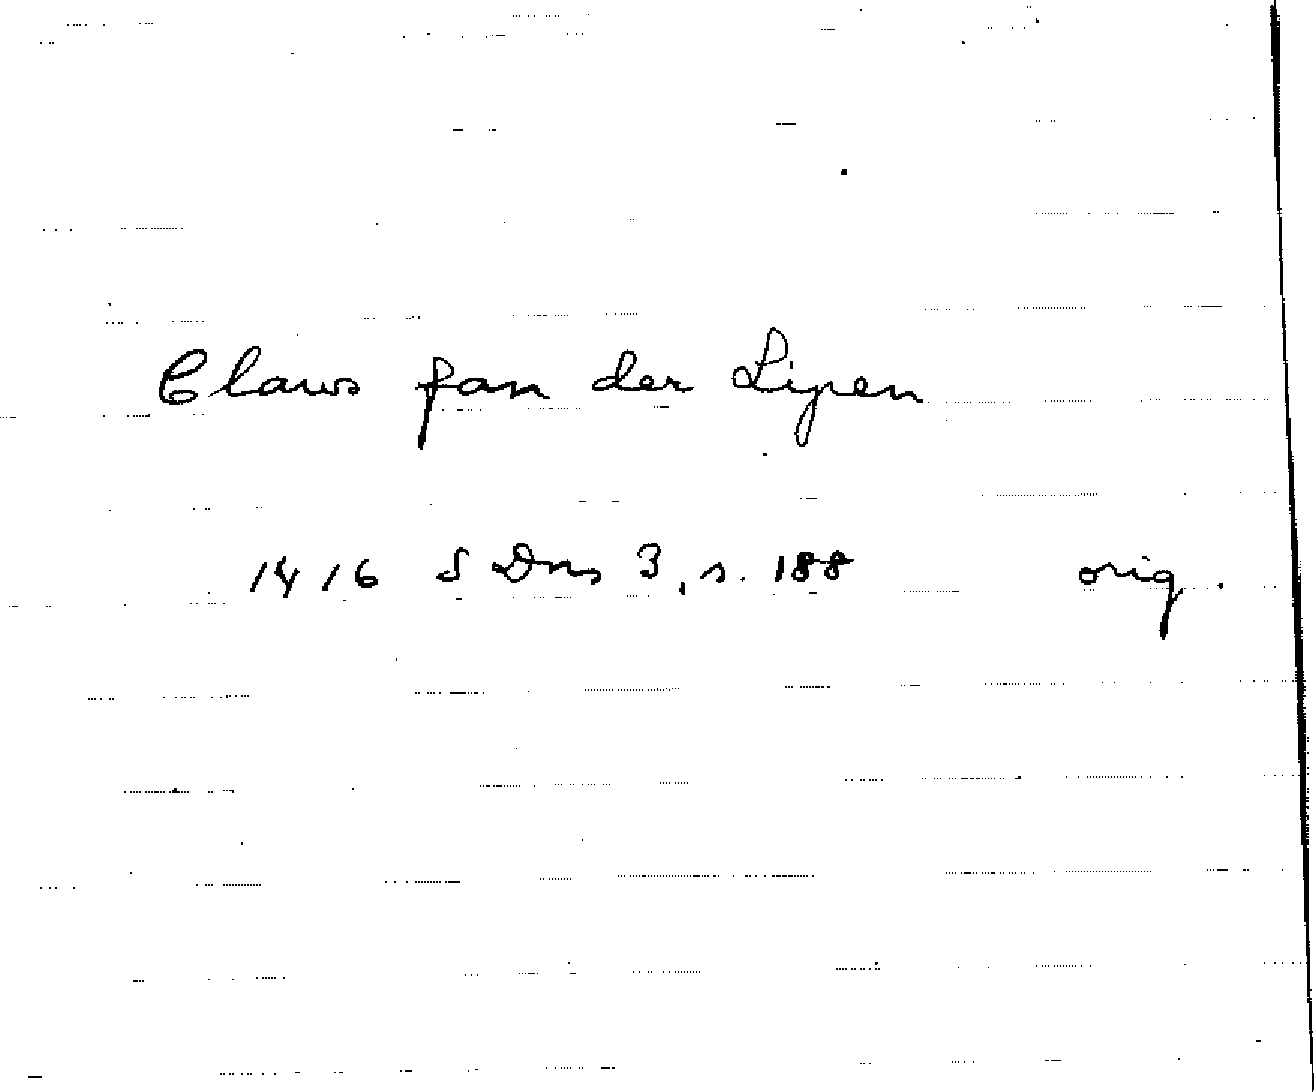 Claws fan der Lipen
1416 SDns 3, s. 188 orig.